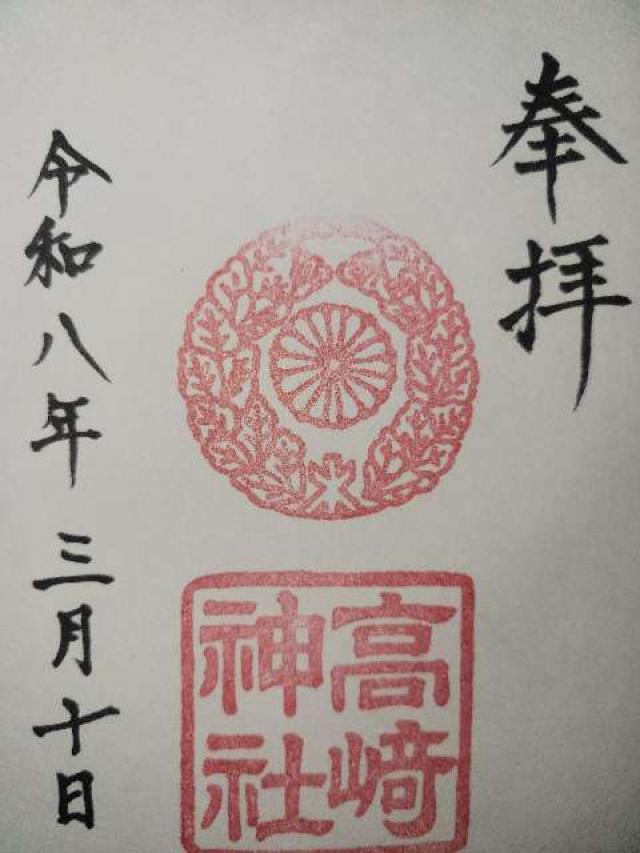 奉拝
高崎
神社
令和八年三月十日